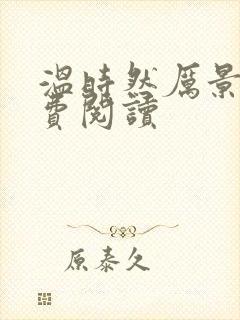 温時然厲景
費閱讀
原泰久